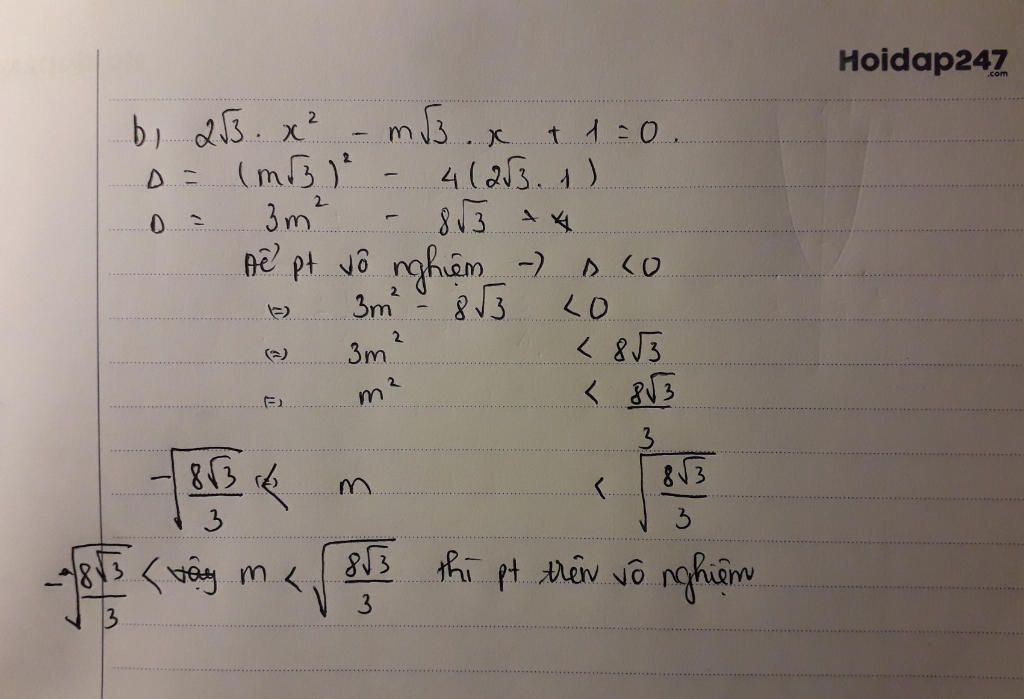 Hoidap247
.com
b, 2√3 . x² - m√3 . x + 1 = 0.
Δ = (m√3)² - 4(2√3 . 1)
Δ = 3m² - 8√3
Để pt vô nghiệm -> Δ < 0
(=) 3m² - 8√3 < 0
(=) 3m² < 8√3
(=) m² < 8√3/3
-√(8√3/3) < m < √(8√3/3)
-√(8√3/3) < vậy m < √(8√3/3) thì pt trên vô nghiệm